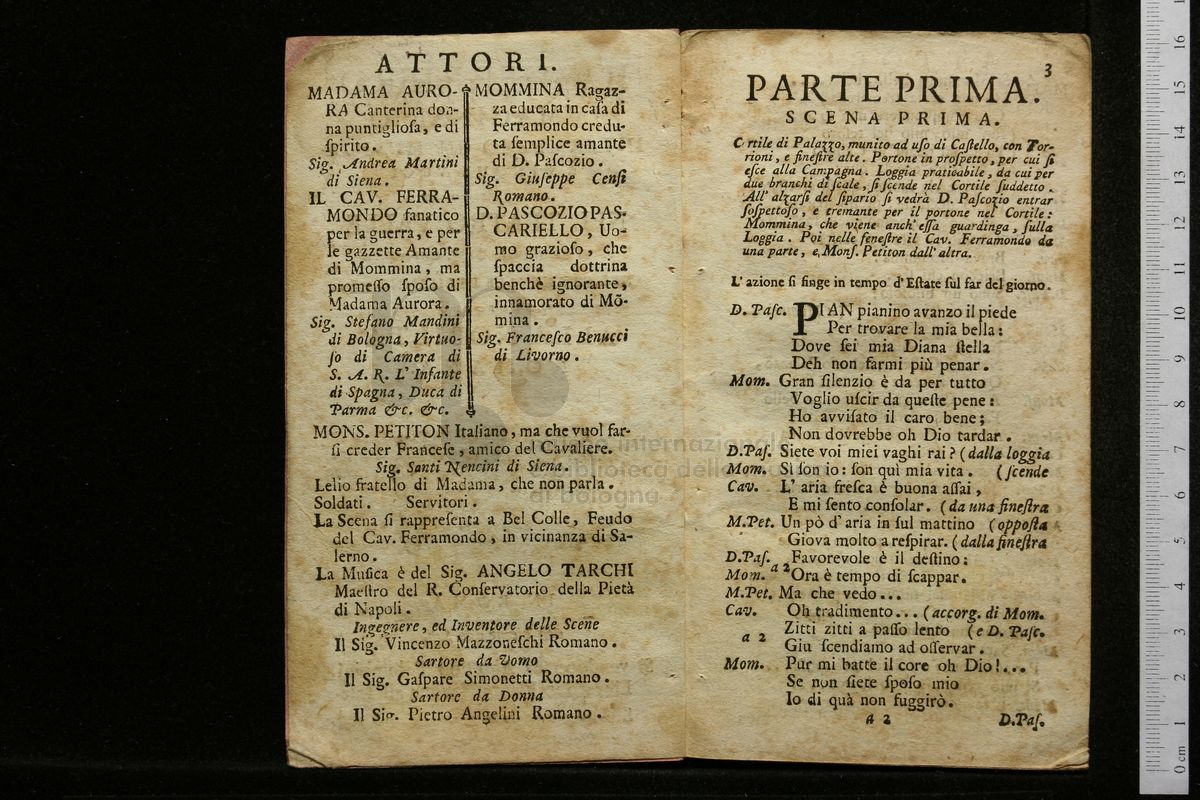 ATTORI.
MADAMA AURO-
RA Canterina don-
na puntigliosa, e di
spirito.
Sig. Andrea Martini
di Siena.
IL CAV. FERRA-
MONDO fanatico
per la guerra, e per
le gazzette Amante
di Mommina, ma
promesso sposo di
Madama Aurora.
Sig. Stefano Mandini
di Bologna, Virtuo-
so di Camera di
S. A. R. L' Infante
di Spagna, Duca di
Parma &c. &c.
MOMMINA Ragaz-
za educata in casa di
Ferramondo credu-
ta semplice amante
di D. Pascozio.
Sig. Giuseppe Censi
Romano.
D. PASCOZIO PAS-
CARIELLO, Uo-
mo grazioso, che
spaccia dottrina
benchè ignorante,
innamorato di Mõ-
mina.
Sig. Francesco Benucci
di Livorno.
MONS. PETITON Italiano, ma che vuol far-
si creder Francese, amico del Cavaliere.
Sig. Santi Nencini di Siena.
Lelio fratello di Madama, che non parla.
Soldati. Servitori.
La Scena si rappresenta a Bel Colle, Feudo
del Cav. Ferramondo, in vicinanza di Sa-
lerno.
La Musica è del Sig. ANGELO TARCHI
Maestro del R. Conservatorio della Pietà
di Napoli.
Ingegnere, ed Inventore delle Scene
Il Sig. Vincenzo Mazzoneschi Romano.
Sartore da Uomo
Il Sig. Gaspare Simonetti Romano.
Sartore da Donna
Il Sig. Pietro Angelini Romano.
3
PARTE PRIMA.
SCENA PRIMA.
Cortile di Palazzo, munito ad uso di Castello, con Tor-
rioni, e finestre alte. Portone in prospetto, per cui si
esce alla Campagna. Loggia praticabile, da cui per
due branchi di scale, si scende nel Cortile suddetto.
All' alzarsi del sipario si vedrà D. Pascozio entrar
sospettoso, e tremante per il portone nel Cortile:
Mommina, che viene anch' essa guardinga, sulla
Loggia. Poi nelle fenestre il Cav. Ferramondo da
una parte, e, Mons. Petiton dall' altra.
L' azione si finge in tempo d' Estate sul far del giorno.
D. Pasc. PIAN pianino avanzo il piede
Per trovare la mia bella:
Dove sei mia Diana stella
Deh non farmi più penar.
Mom. Gran silenzio è da per tutto
Voglio uscir da queste pene:
Ho avvisato il caro bene;
Non dovrebbe oh Dio tardar.
D.Pas. Siete voi miei vaghi rai? (dalla loggia
Mom. Sì son io: son quì mia vita. (scende
Cav. L' aria fresca è buona assai,
E mi sento consolar. (da una finestra
M.Pet. Un pò d' aria in sul mattino (opposta
Giova molto a respirar. (dalla finestra
D.Pas. Favorevole è il destino:
Mom. a 2 Ora è tempo di scappar.
M.Pet. Ma che vedo...
Cav. Oh tradimento... (accorg. di Mom.
Zitti zitti a passo lento (e D. Pasc.
a 2
Giu scendiamo ad osservar.
Mom. Pur mi batte il core oh Dio!...
Se non siete sposo mio
Io di quà non fuggirò.
a 2 D.Pas.